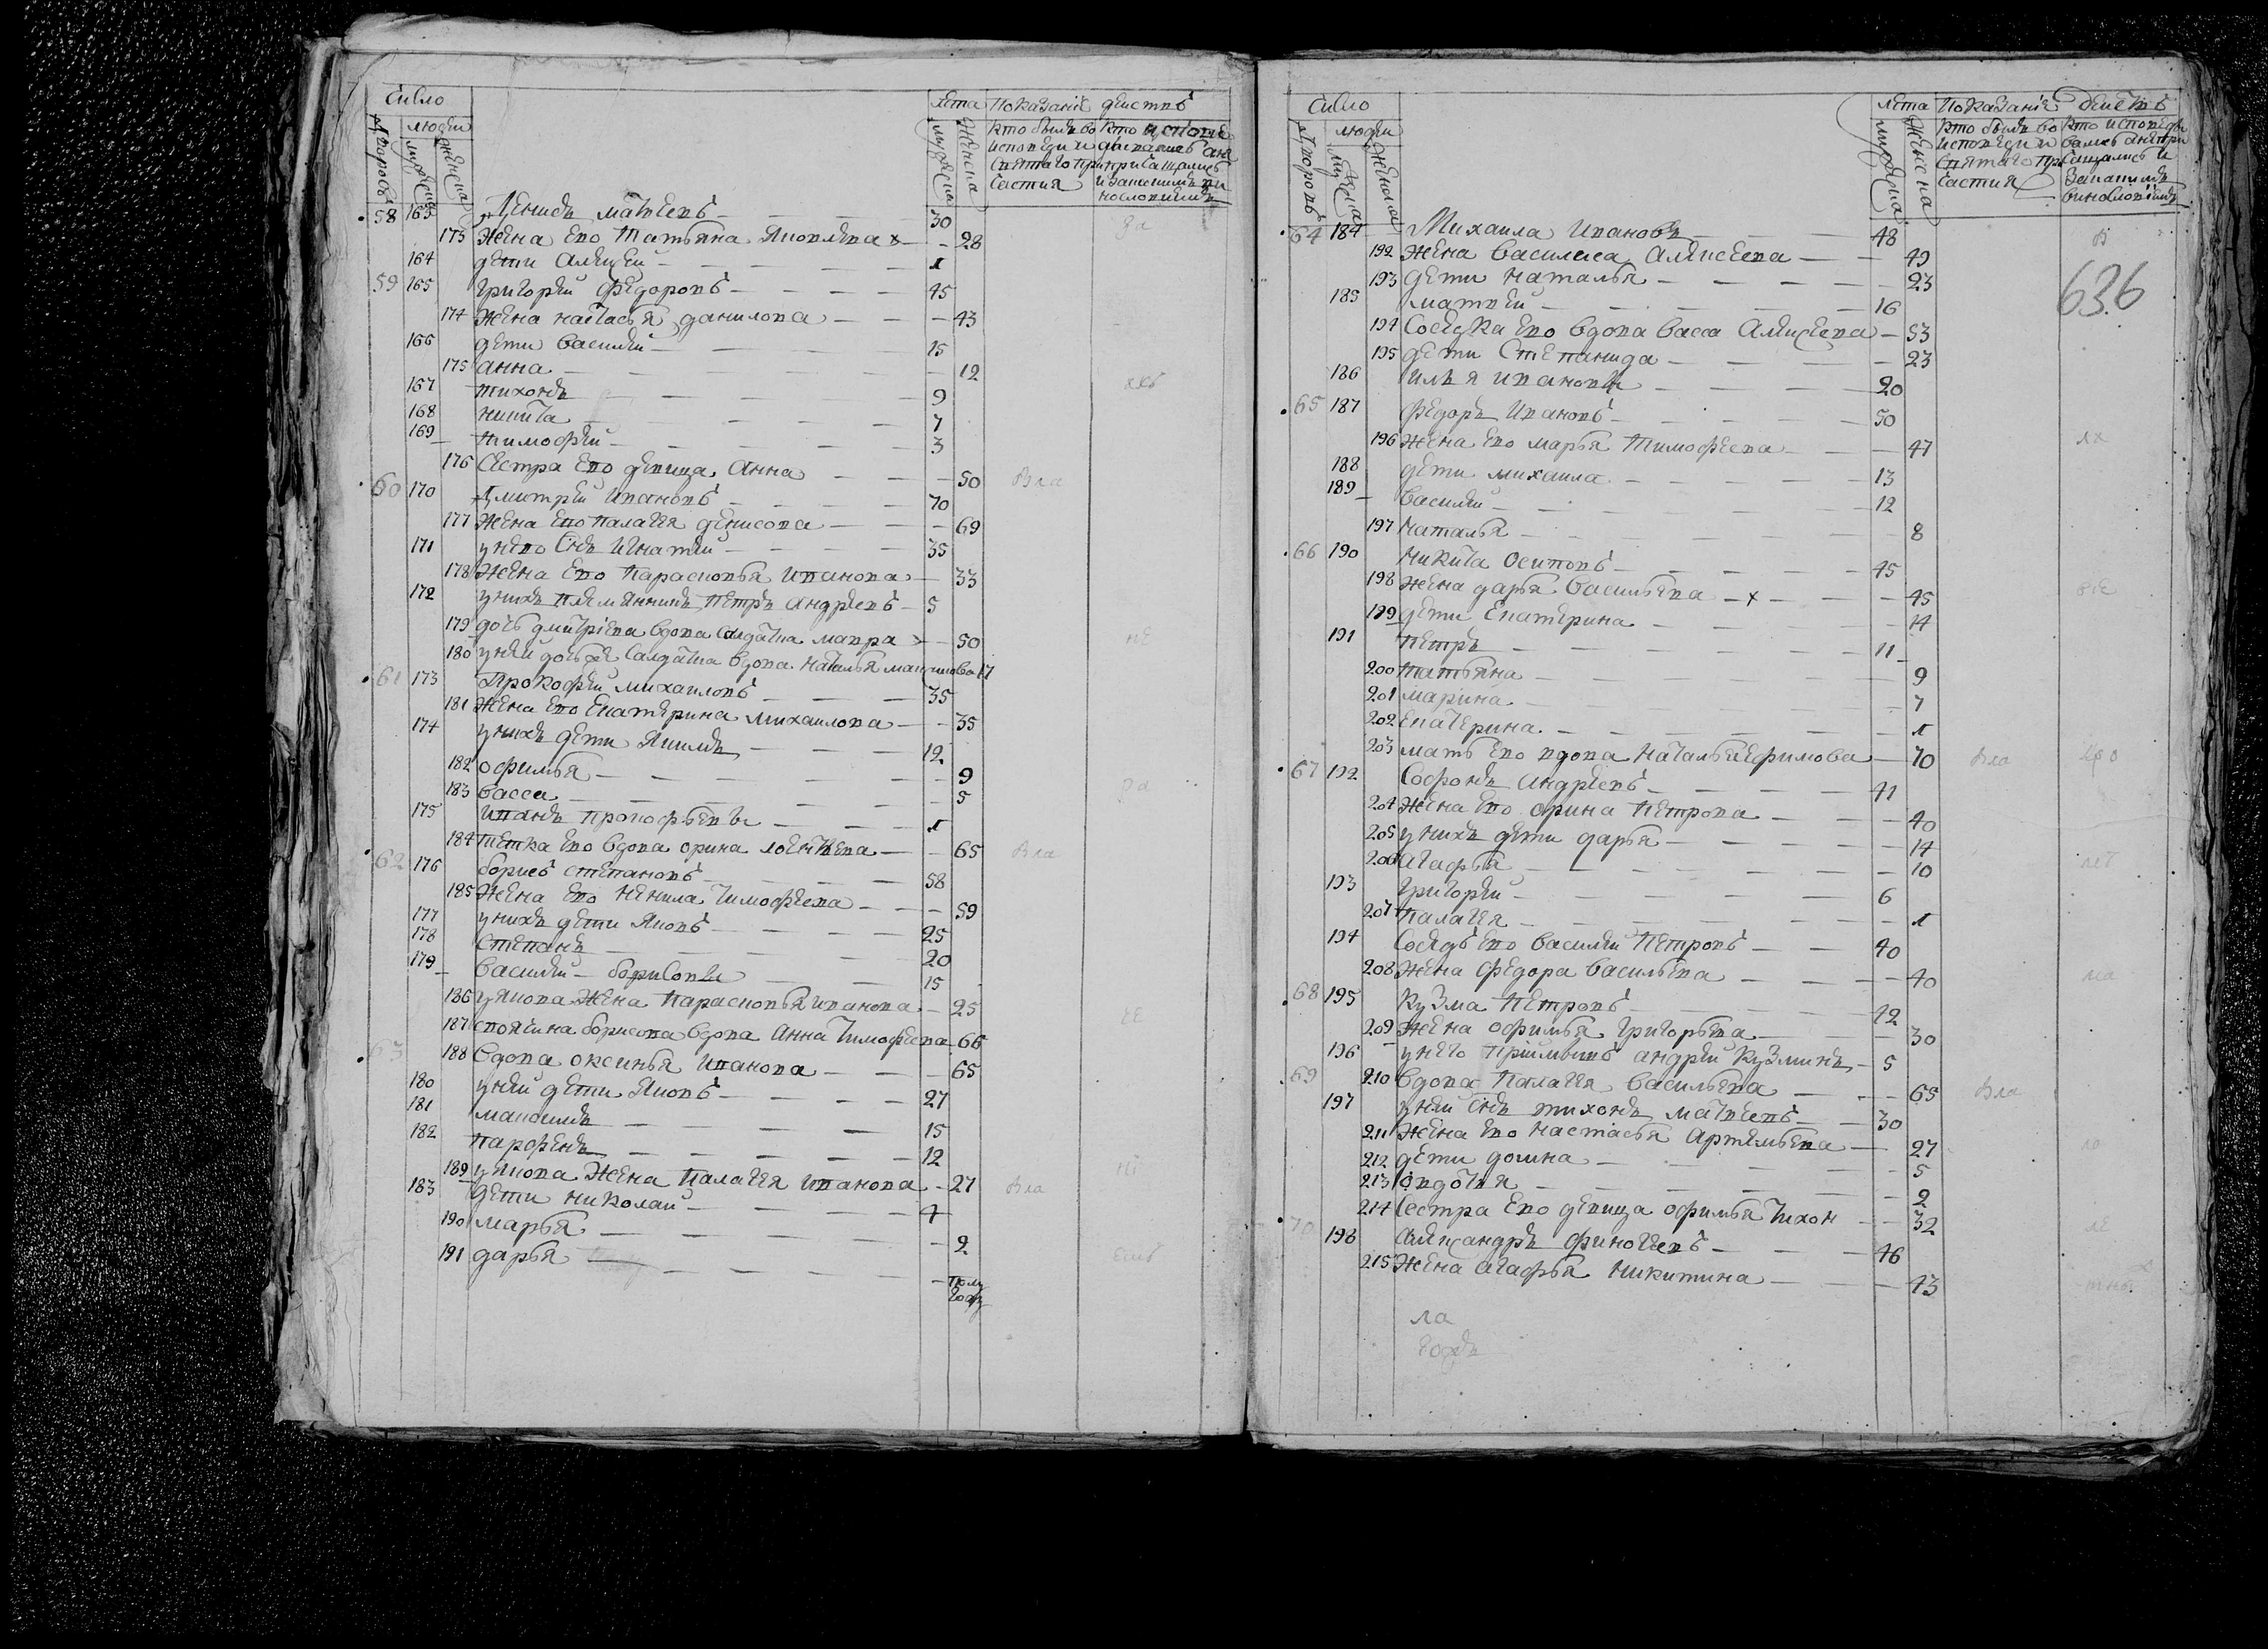 Число
люди
дворовъ
мужеска
женска
лета
мужеска
женска
Показанїе действъ
кто были во исповеди и святаго причастия
58 163 Денисъ матвеевъ 30
173 жена Ево Татьяна Яковлева 28
164 дети Алексей 1
59 165 григорей Федоровъ 45
174 жена настасья данилова 43
166 дети василей 15
175 анна 12
167 тихонъ 9
168 никита 7
169 тимофей 3
176 Сестра Ево девица Анна 50
60 170 Дмитрей Ивановъ 70
177 жена Ево палагея денисова 69
171 у нево Снъ Игнатей 35
178 жена Ево Парасковья Иванова 33
172 у нихъ племянникъ Петръ Андреевъ 5
179 дочь дмитриева вдова салдатка мавра 50
180 у ней дочь же Салдатка вдова наталья максимова 17
61 173 Прокофей михаиловъ 35
181 жена Ево Екатерина михаилова 35
174 у нихъ дети Якимъ 12
182 офимья 9
183 васса 5
175 Иванъ прокофьевъ 1
184 тетка Ево вдова орина 65
62 176 борисъ степановъ 58
185 жена Ево ненила тимофеева 59
177 у нихъ дети Яковъ 25
178 степанъ 20
179 василей борисовы 15
186 у Якова жена Парасковья иванова 25
187 своячина борисова вдова Анна тимофеева 66
63 188 вдова оксинья Иванова 65
180 у ней дети Яковъ 27
181 максимъ 15
182 парфенъ 12
189 у Якова жена Палагея иванова 27
183 дети николай 4
190 марья 2
191 дарья полу году
Число
люди
дворовъ
мужеска
женска
лета
мужеска
женска
Показанїя действъ
кто были во исповеди и святаго причастия
636
64 184 Михаила Ивановъ 48
192 жена василиса Алексеева 49
193 дети наталья 23
185 матвей 16
194 Соседка Ево вдова васса Алексеева 53
195 дети Степанида 23
186 илья ивановъ 20
65 187 федоръ Ивановъ 50
196 жена Ево марья Тимофеева 47
188 дети михаила 13
189 василей 12
197 наталья 8
66 190 никита Осиповъ 45
198 жена дарья васильева 45
199 дети Екатерина 14
191 петръ 11
200 татьяна 9
201 марина 7
202 Екатерина 1
203 мать Ево вдова наталья ефимова 70
67 192 Софронъ Андреевъ 41
204 жена Ево орина Петрова 40
205 у нихъ дети дарья 14
206 агафья 10
193 григорей 6
207 палагея 1
194 Соседъ Ево василей Петровъ 40
208 жена федора васильева 40
68 195 Кузма Петровъ 42
209 жена офимья григорьева 30
196 у него приимышъ андрей Кузминъ 5
69 210 вдова Палагея васильева 65
197 у ней Снъ тихонъ матвеевъ 30
211 жена Ево настасья Артемьева 27
212 дети домна 5
213 овдотья 2
214 Сестра Ево девица офимья тихон 32
70 198 Александръ финогеевъ 46
215 жена агафья никитина 43